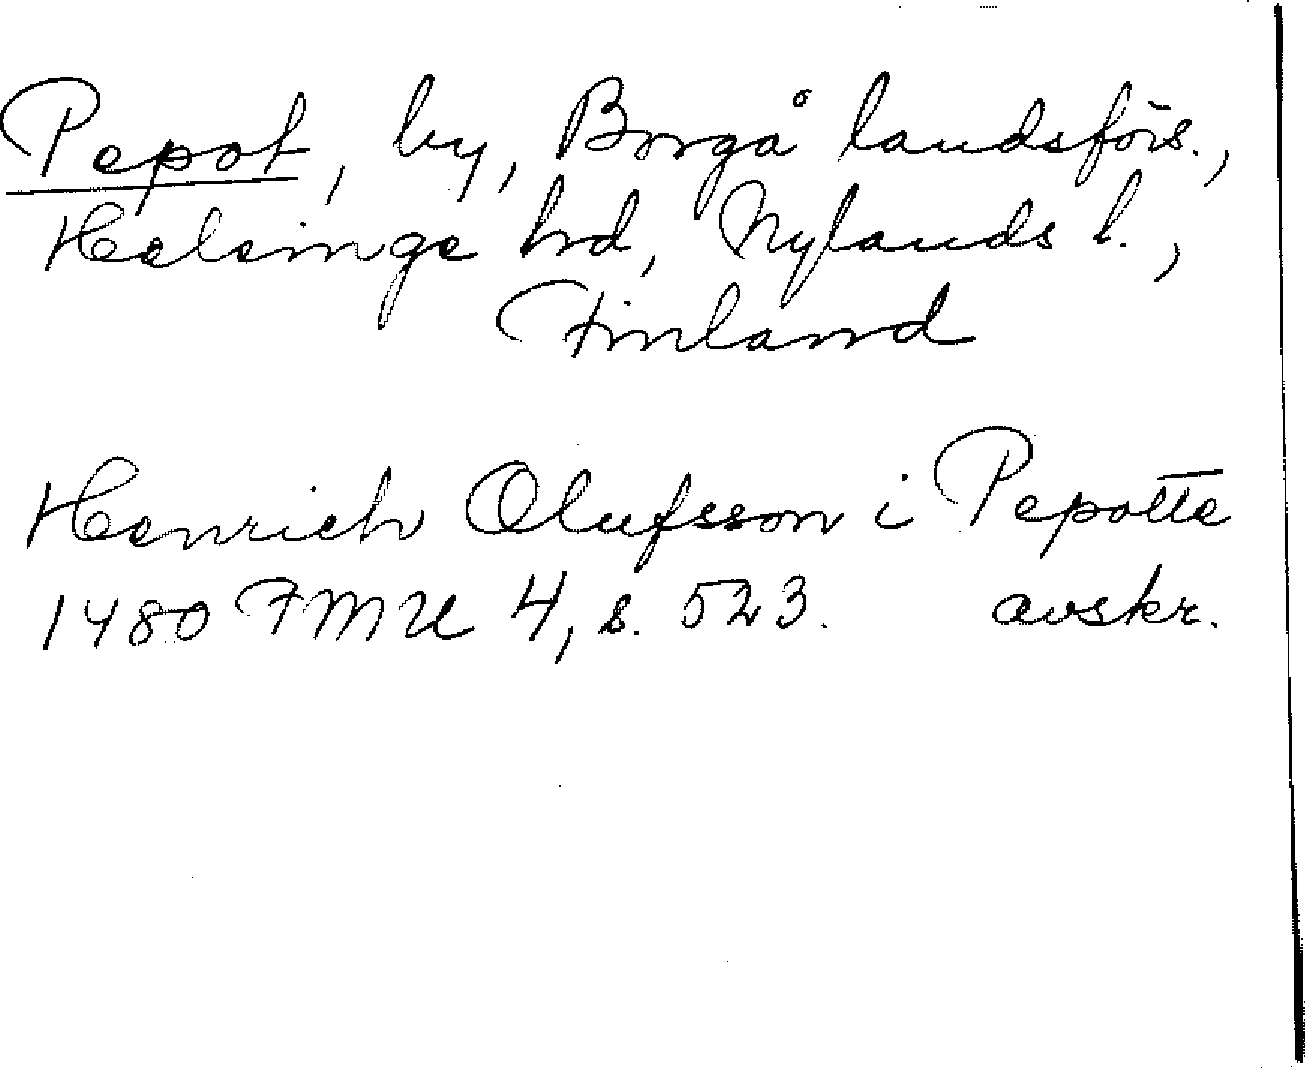 Pepot, by, Borgå landsförs.,
Helsinge hd, Nylands l.,
Finland
Henrich Olufsson i Pepotte
1480 FMU 4, s. 523. avskr.